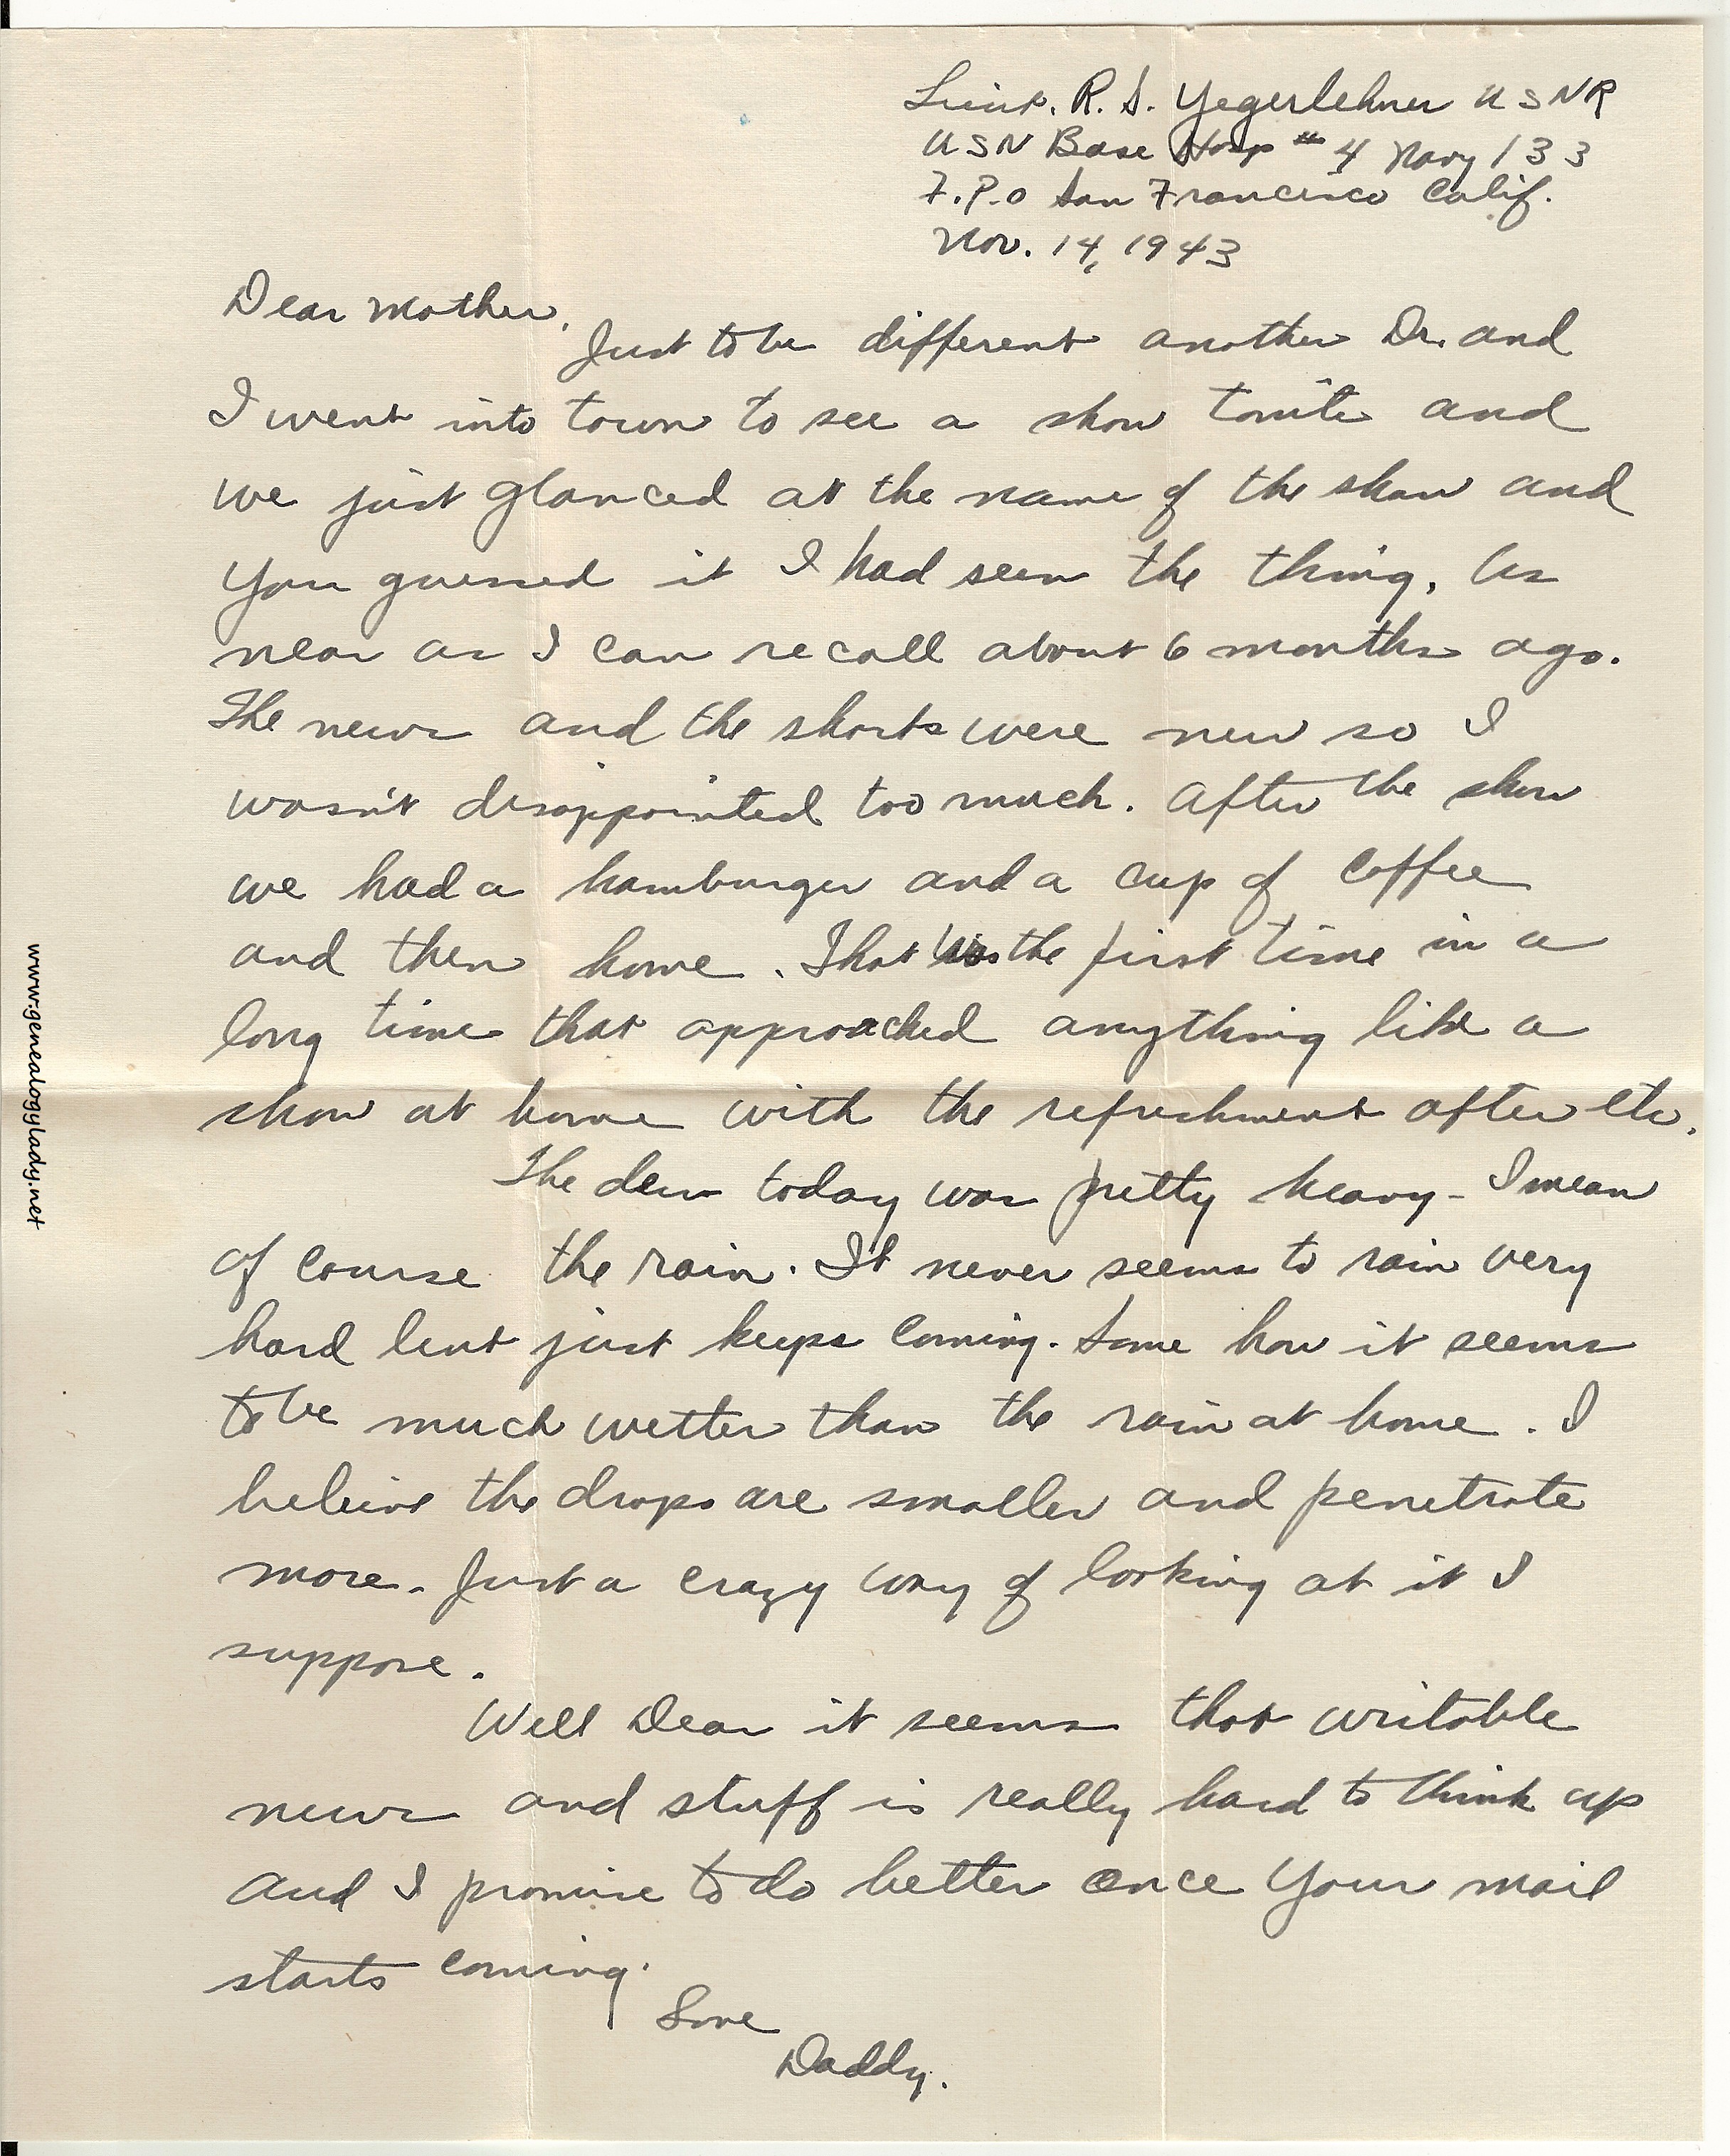 Lieut. R. S. Yegerlehner USNR
USN Base Hosp #4 Navy 133
F.P.O San Francisco Calif.
Nov. 14, 1943
Dear Mother,
Just to be different another Dr. and
I went into town to see a show tonite and
we just glanced at the name of the show and
you guessed it I had seen the thing, as
near as I can recall about 6 months ago.
The news and the shorts were new so I
wasn't disappointed too much. After the show
we had a hamburger and a cup of coffee
and then home. That was the first time in a
long time that approached anything like a
show at home with the refreshment after etc.
The dew today was pretty heavy - I mean
of course the rain. It never seems to rain very
hard but just keeps coming. Some how it seems
to be much wetter than the rain at home. I
beleive the drops are smaller and penetrate
more. Just a crazy way of looking at it I
suppose.
Well Dear it seems that writable
news and stuff is really hard to think up
and I promise to do better once your mail
starts coming.
Love
Daddy.
www.genealogylady.net